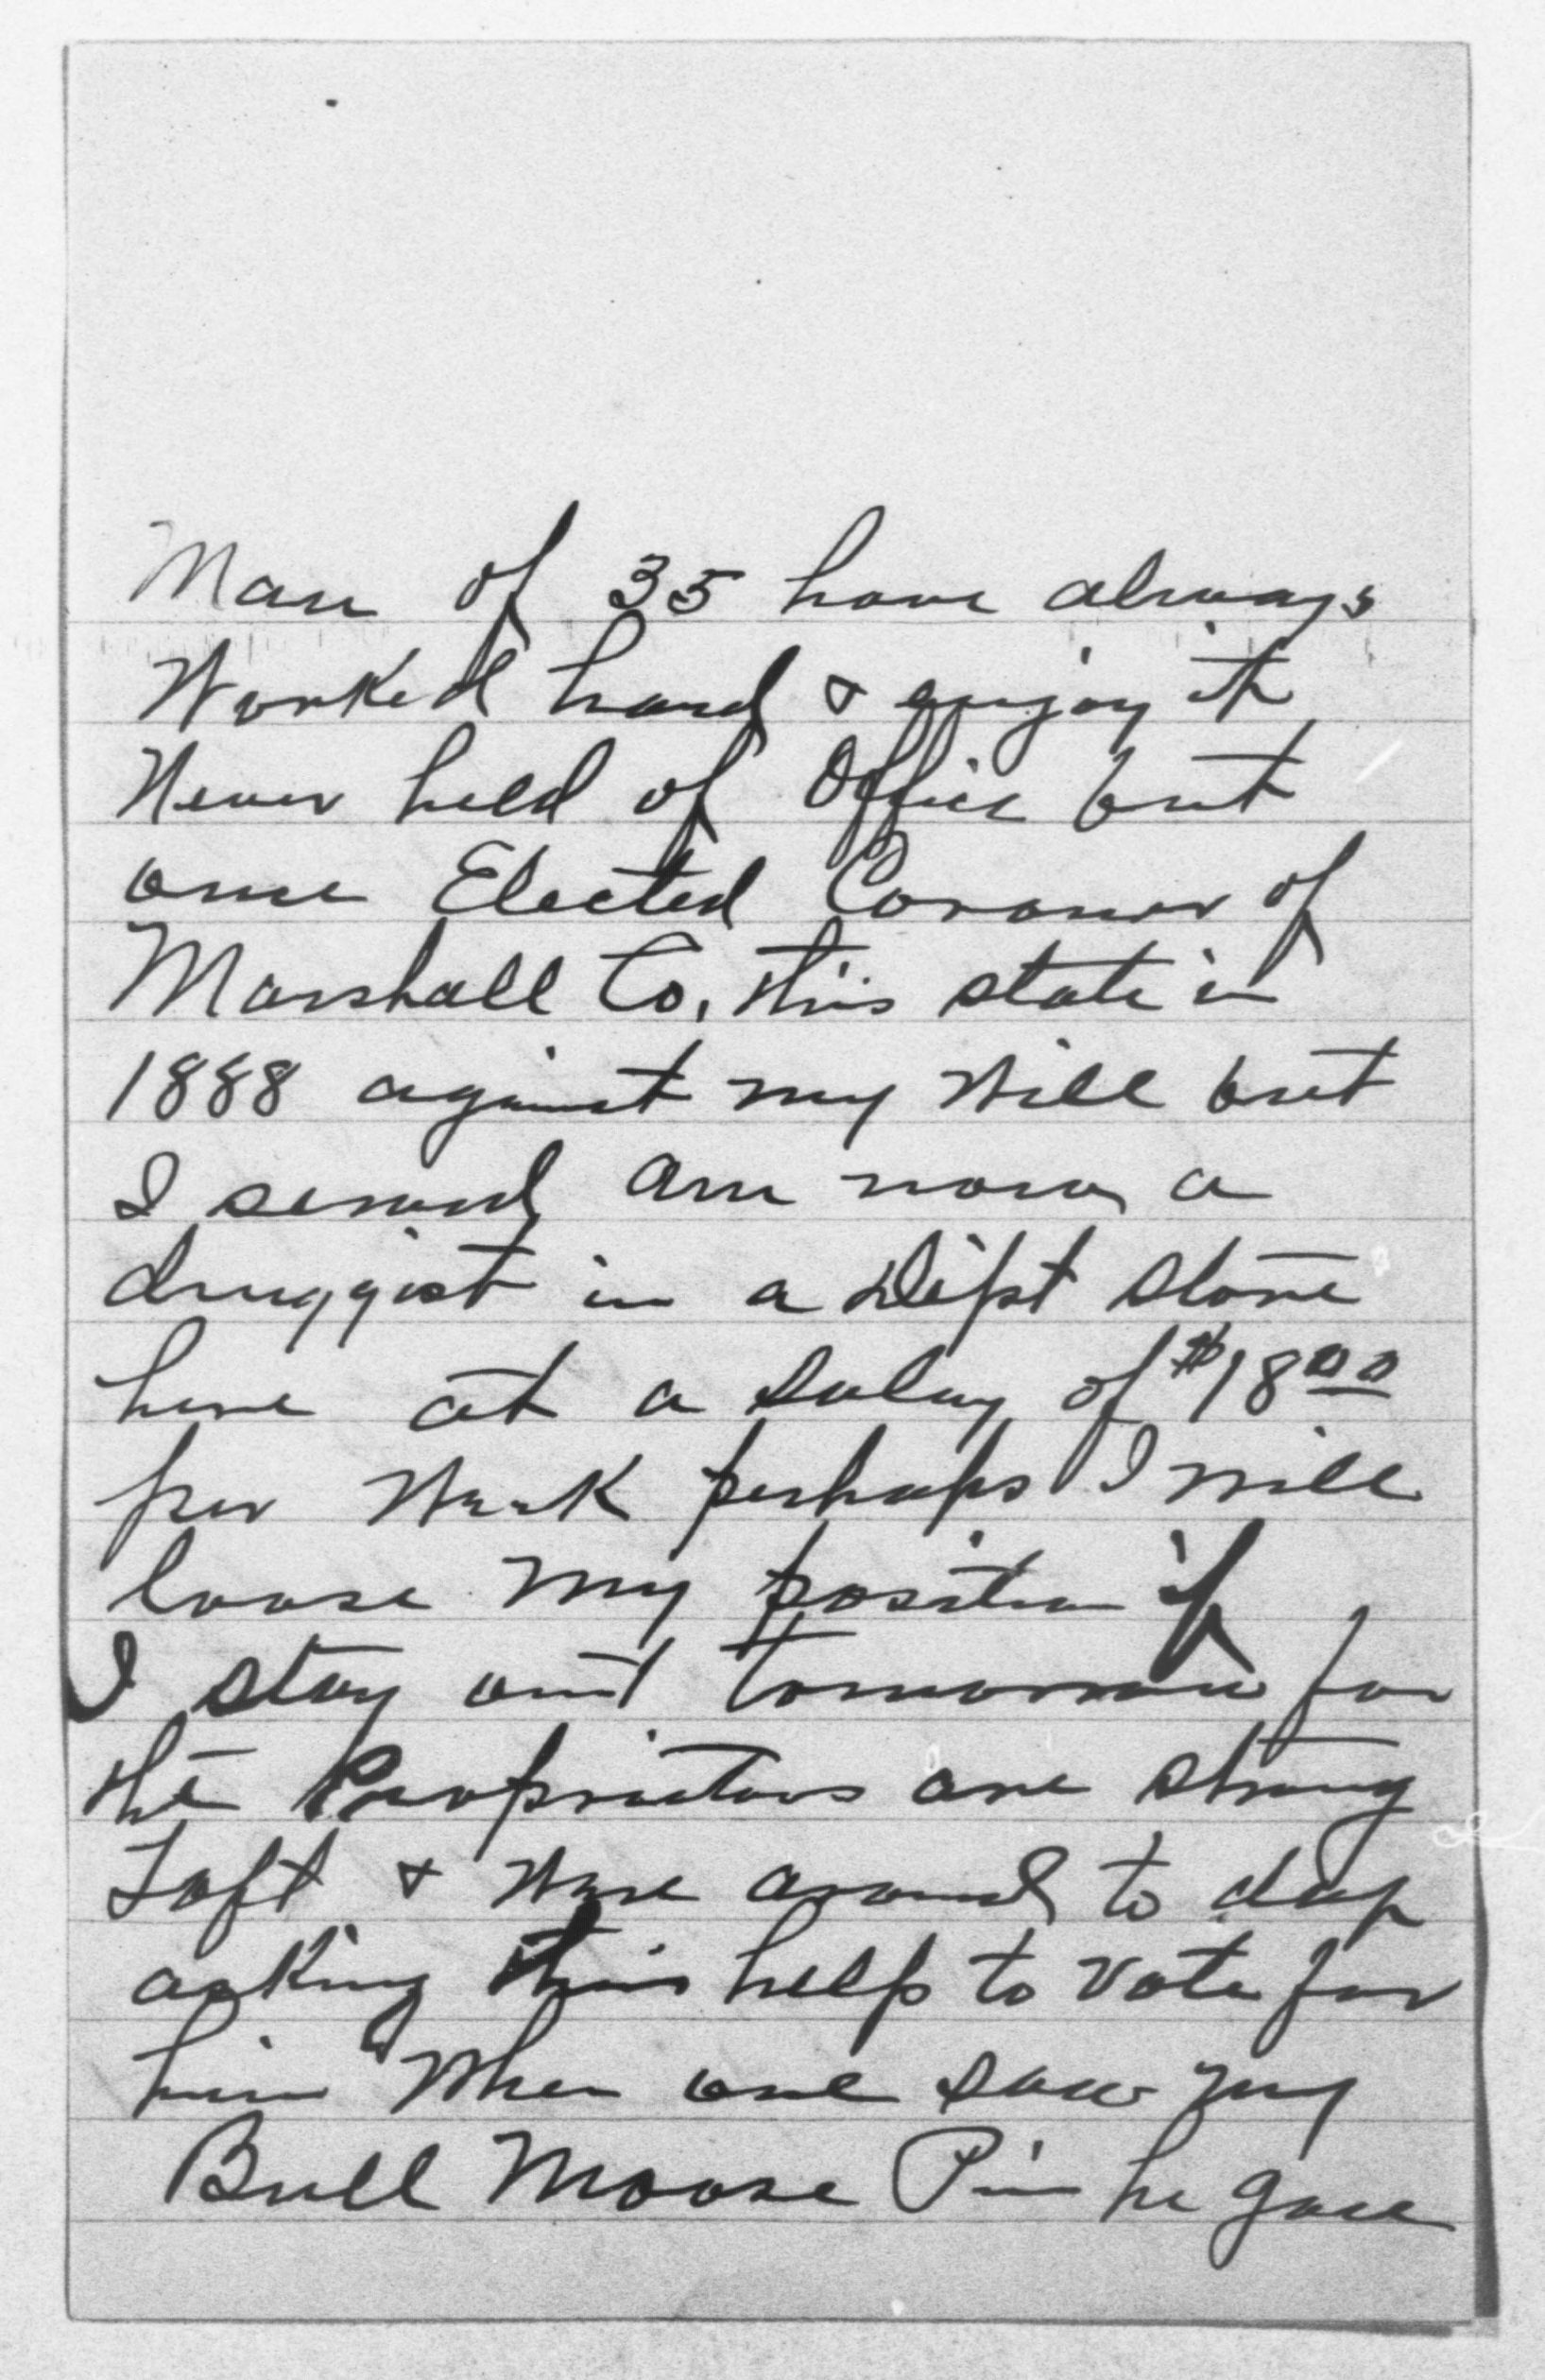 Man of 35 have always
Worked hard & enjoy it
Never held of Office but
once Elected Coroner of
Marshall Co, this state in
1888 against my Will but
I served, am now a
druggist in a Dept Store
here at a Salary of $18.00
per Week perhaps I will
loose my position if
I stay out tomorrow for
the Proprietors are strong
Taft & were around to day
asking their help to vote for
him When one saw my
Bull Moose Pin he gave